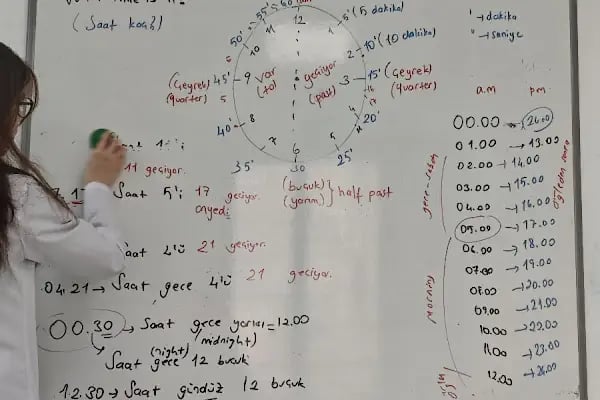 (Saat kaç?)
55' 60'
12
11
1
5' (5 dakika)
50'
10
2
10' (10 dakika)
(Çeyrek) 45'
(quarter)
9
var
(to)
geçiyor
(past)
3
15' (Çeyrek)
(quarter)
40'
8
4
20'
7
6
5
35'
30
25'
' → dakika
" → saniye
a.m
pm
00.00 → 24.00
01.00 → 13.00
02.00 → 14.00
03.00 → 15.00
04.00 → 16.00
05.00 → 17.00
06.00 → 18.00
07.00 → 19.00
08.00 → 20.00
09.00 → 21.00
10.00 → 22.00
11.00 → 23.00
12.00 → 24.00
gece - sabah
morning
öğleden sonra
11 geçiyor.
Saat 5'i 17 geçiyor.
onyedi
(buçuk)
(yarım)
half past
4'ü 21 geçiyor.
04.21 → Saat gece 4'ü 21 geçiyor.
00.30 → Saat gece yarısı = 12.00
(night) midnight)
Saat gece 12 buçuk
12.30 → Saat gündüz 12 buçuk